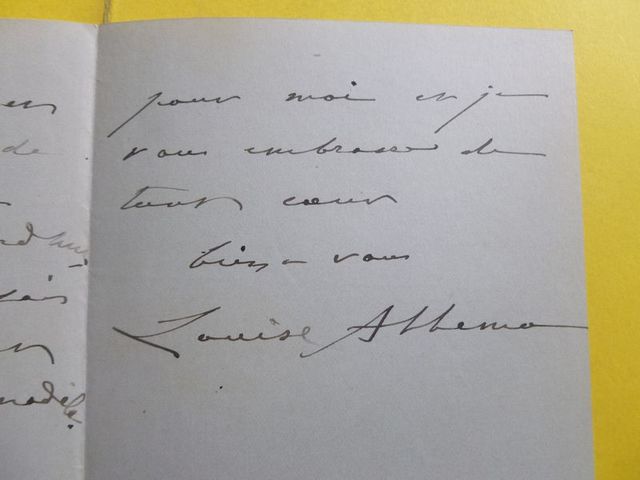 en
pour moi et je
de
vous embrasse de
tout cœur
bien à vous
Louise Abbema